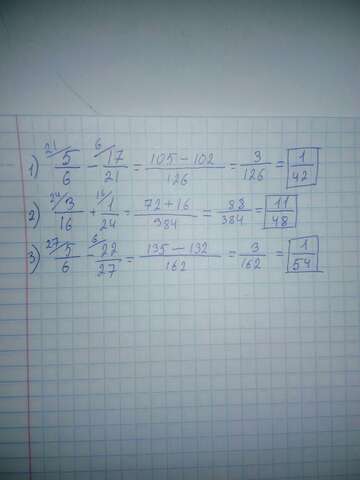 1) ²¹⁄5/6 - ⁶⁄17/21 = 105-102/126 = 3/126 = 1/42
2) ²⁴⁄3/16 + ¹⁶⁄1/24 = 72+16/384 = 88/384 = 11/48
3) ²⁷⁄5/6 - ⁶⁄22/27 = 135-132/162 = 3/162 = 1/54